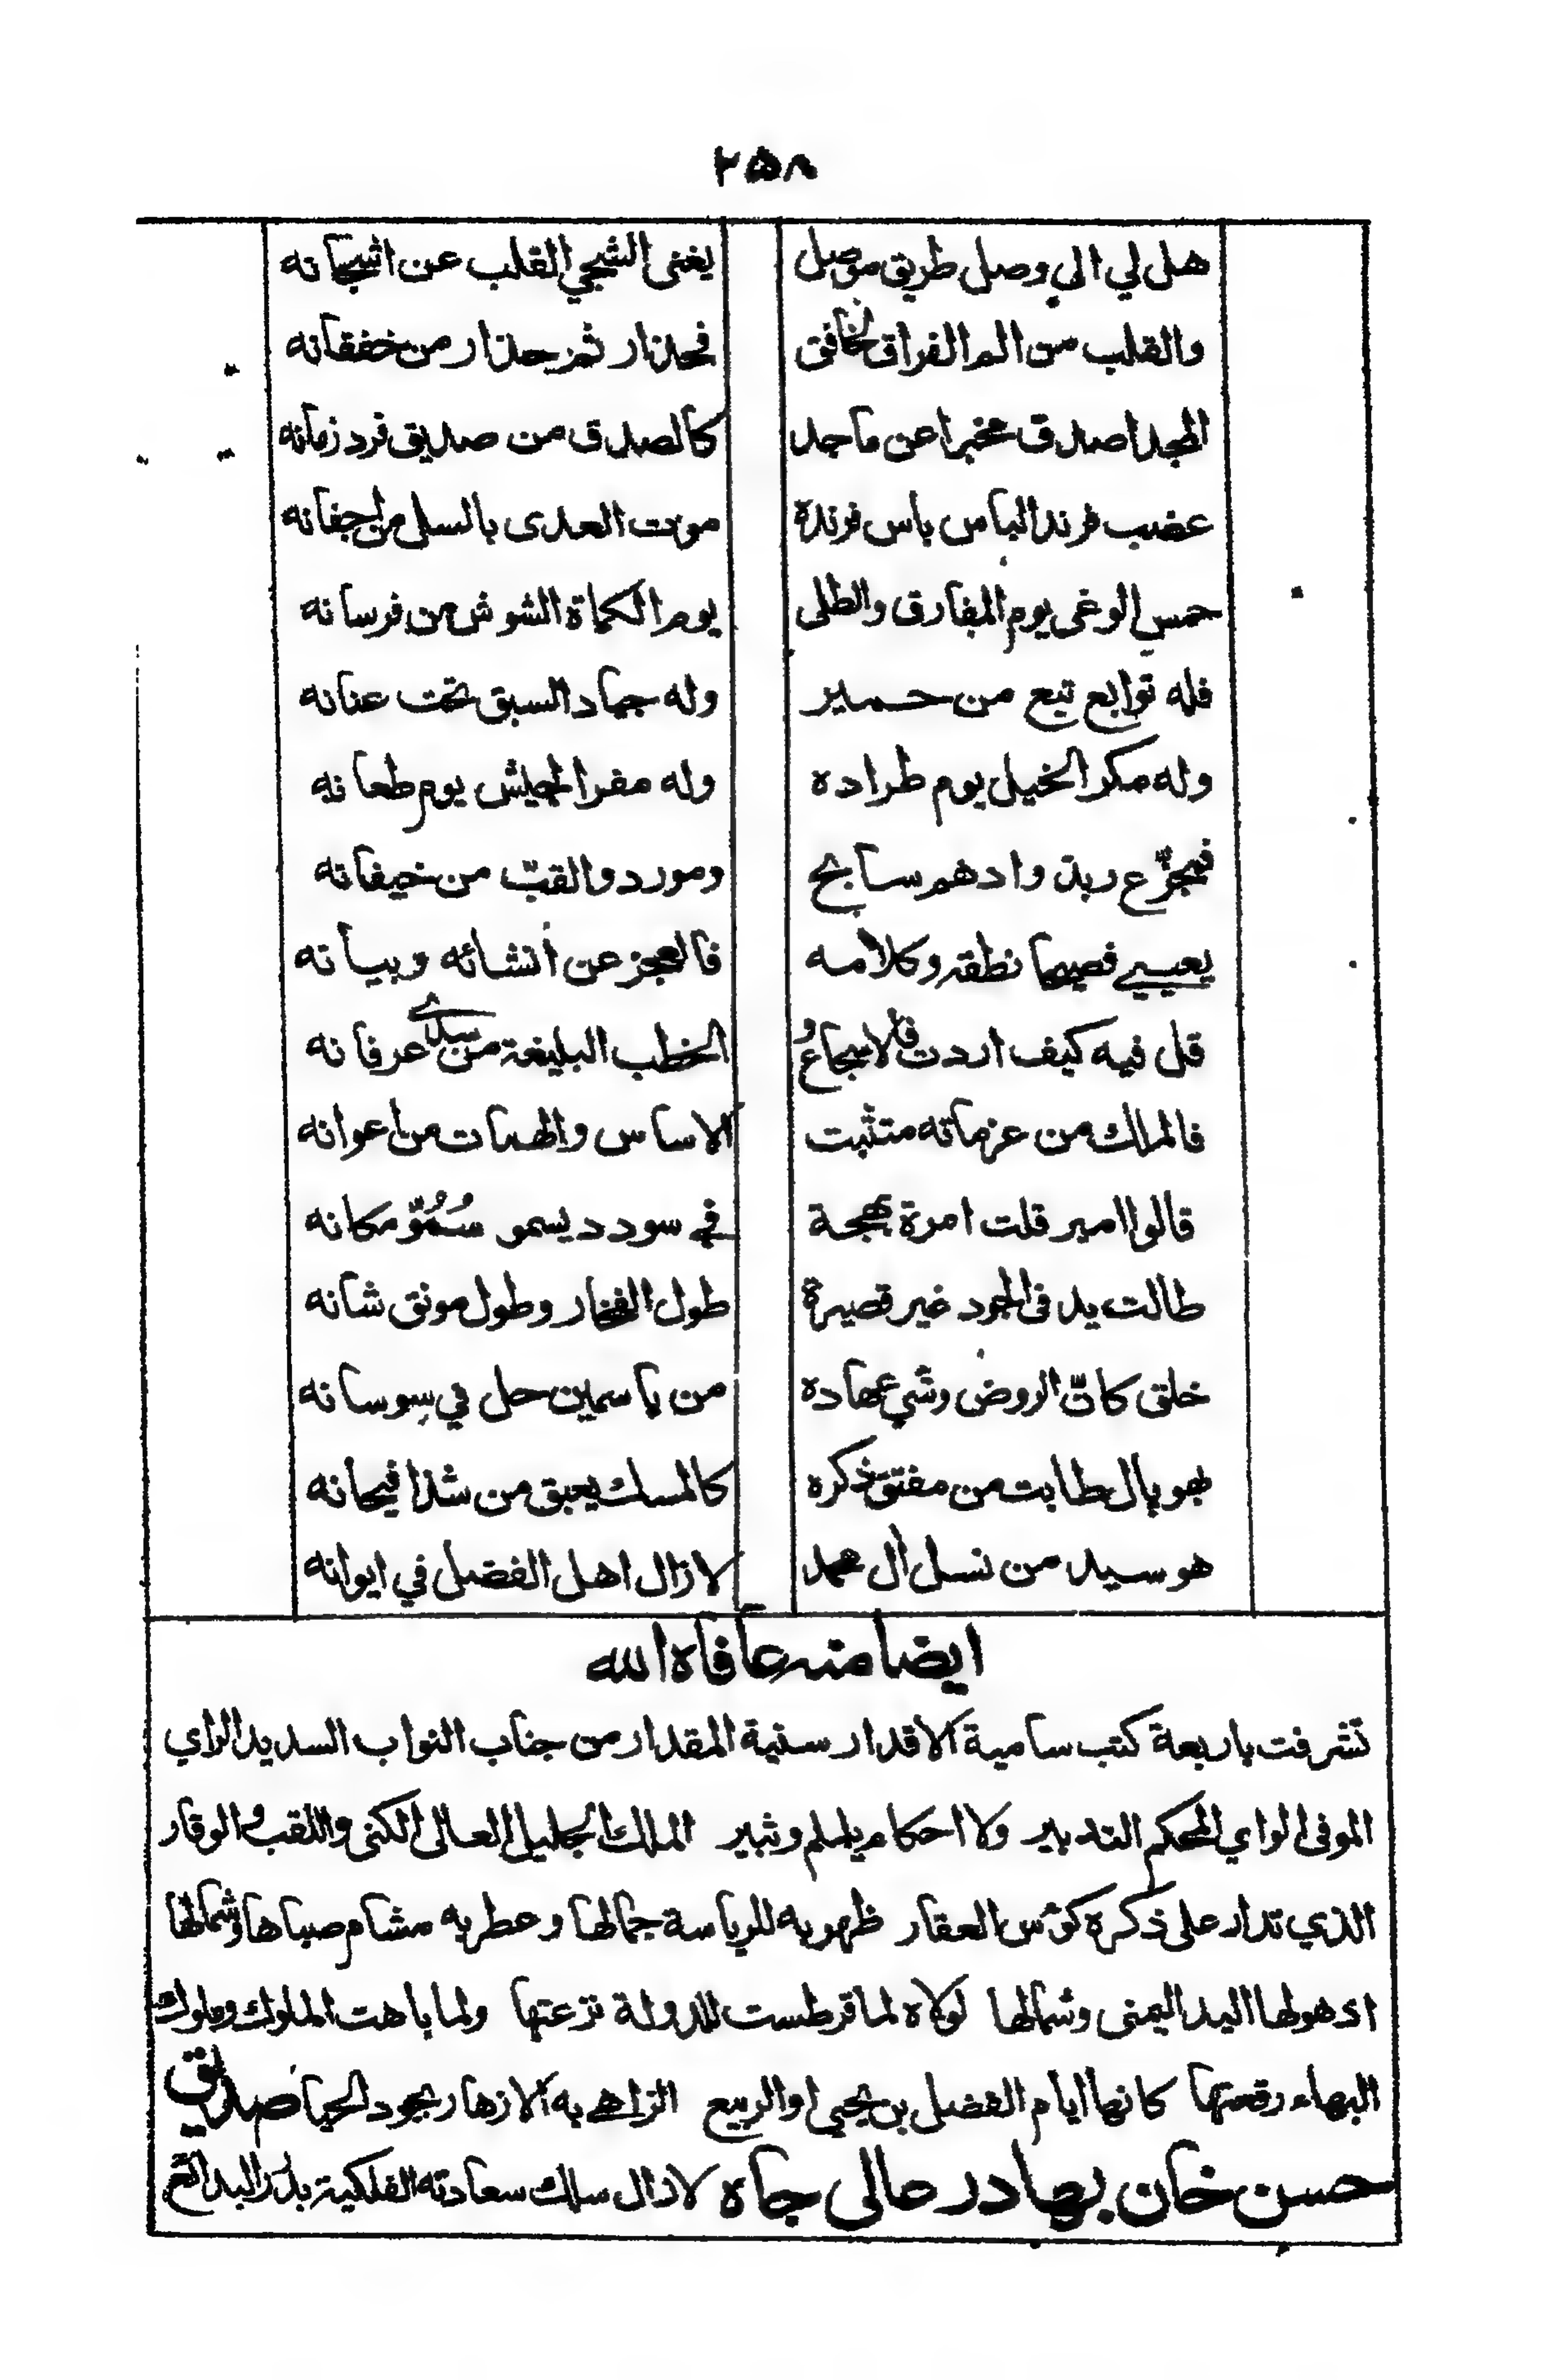 ٢٥٨
هل لي الى وصل طريق موصل يغنى الشجي القلب عن اشجانه
والقلب من الم الفراق لخافق فحذار ثم حذار من خفقانه
المجد اصدق مخبرا عن ماجد كالصدق من صديق فرد زمانه
عضب فرند الباس باس فرنده موت العدى بالسل من اجفانه
حمس الوغى يوم المفارق والطلى يوم الكماة الشوش من فرسانه
فله توابع تبع من حمير وله جياد السبق تحت عنانه
وله مكر الخيل يوم طراده وله مفر الجيش يوم طعانه
فمجزّع ربذ وادهم سابح ومورد والقبّ من خيفانه
يعيي فصيحا نطقه وكلامه فالعجز عن انشائه وبيانه
قل فيه كيف اردت فالاسجاعُ الخطب البليغة من سدى عرفانه
فالملك من عزماته متثبت الاساس والهبات من اعوانه
قالوا امير قلت امرة بهجة في سودد يسمو سُمُوّ مكانه
طالت يد فى الجود غير قصيرة طول الفخار وطول مونق شانه
خلق كانّ الروض وشي عهاده من ياسمين حل في سِوسانه
بهوپال طابت من مفتق ذكره كالمسك يعبق من شذا فيحانه
هو سيد من نسل ال محمد لا زال اهل الفضل في ايوانه
ايضا منه عافاه الله
تشرفت باربعة كتب سامية الاقدار سنية المقدار من جناب النواب السديد الراي
الموفى الواي المحكم التدبير ولا احكام يلملم وثبير الملك الجليل العالى الكنى واللقب والوقار
الذي تدار على ذكره كوس العقار ظهر به للرياسة جمالها وعطر به مشام صباها وشمالها
اذ هو لها اليد اليمنى وشمالها لولاه لما قرطست للدولة نزعتها ولما باهت الملوك وملوك
البهاء رقعتها كانها ايام الفضل بن يحيى او الربيع الزاهي به الازهار بجود الحيا صديق
حسن خان بهادر عالى جاه لا زال سلك سعادته الفلكية بدر البدائع